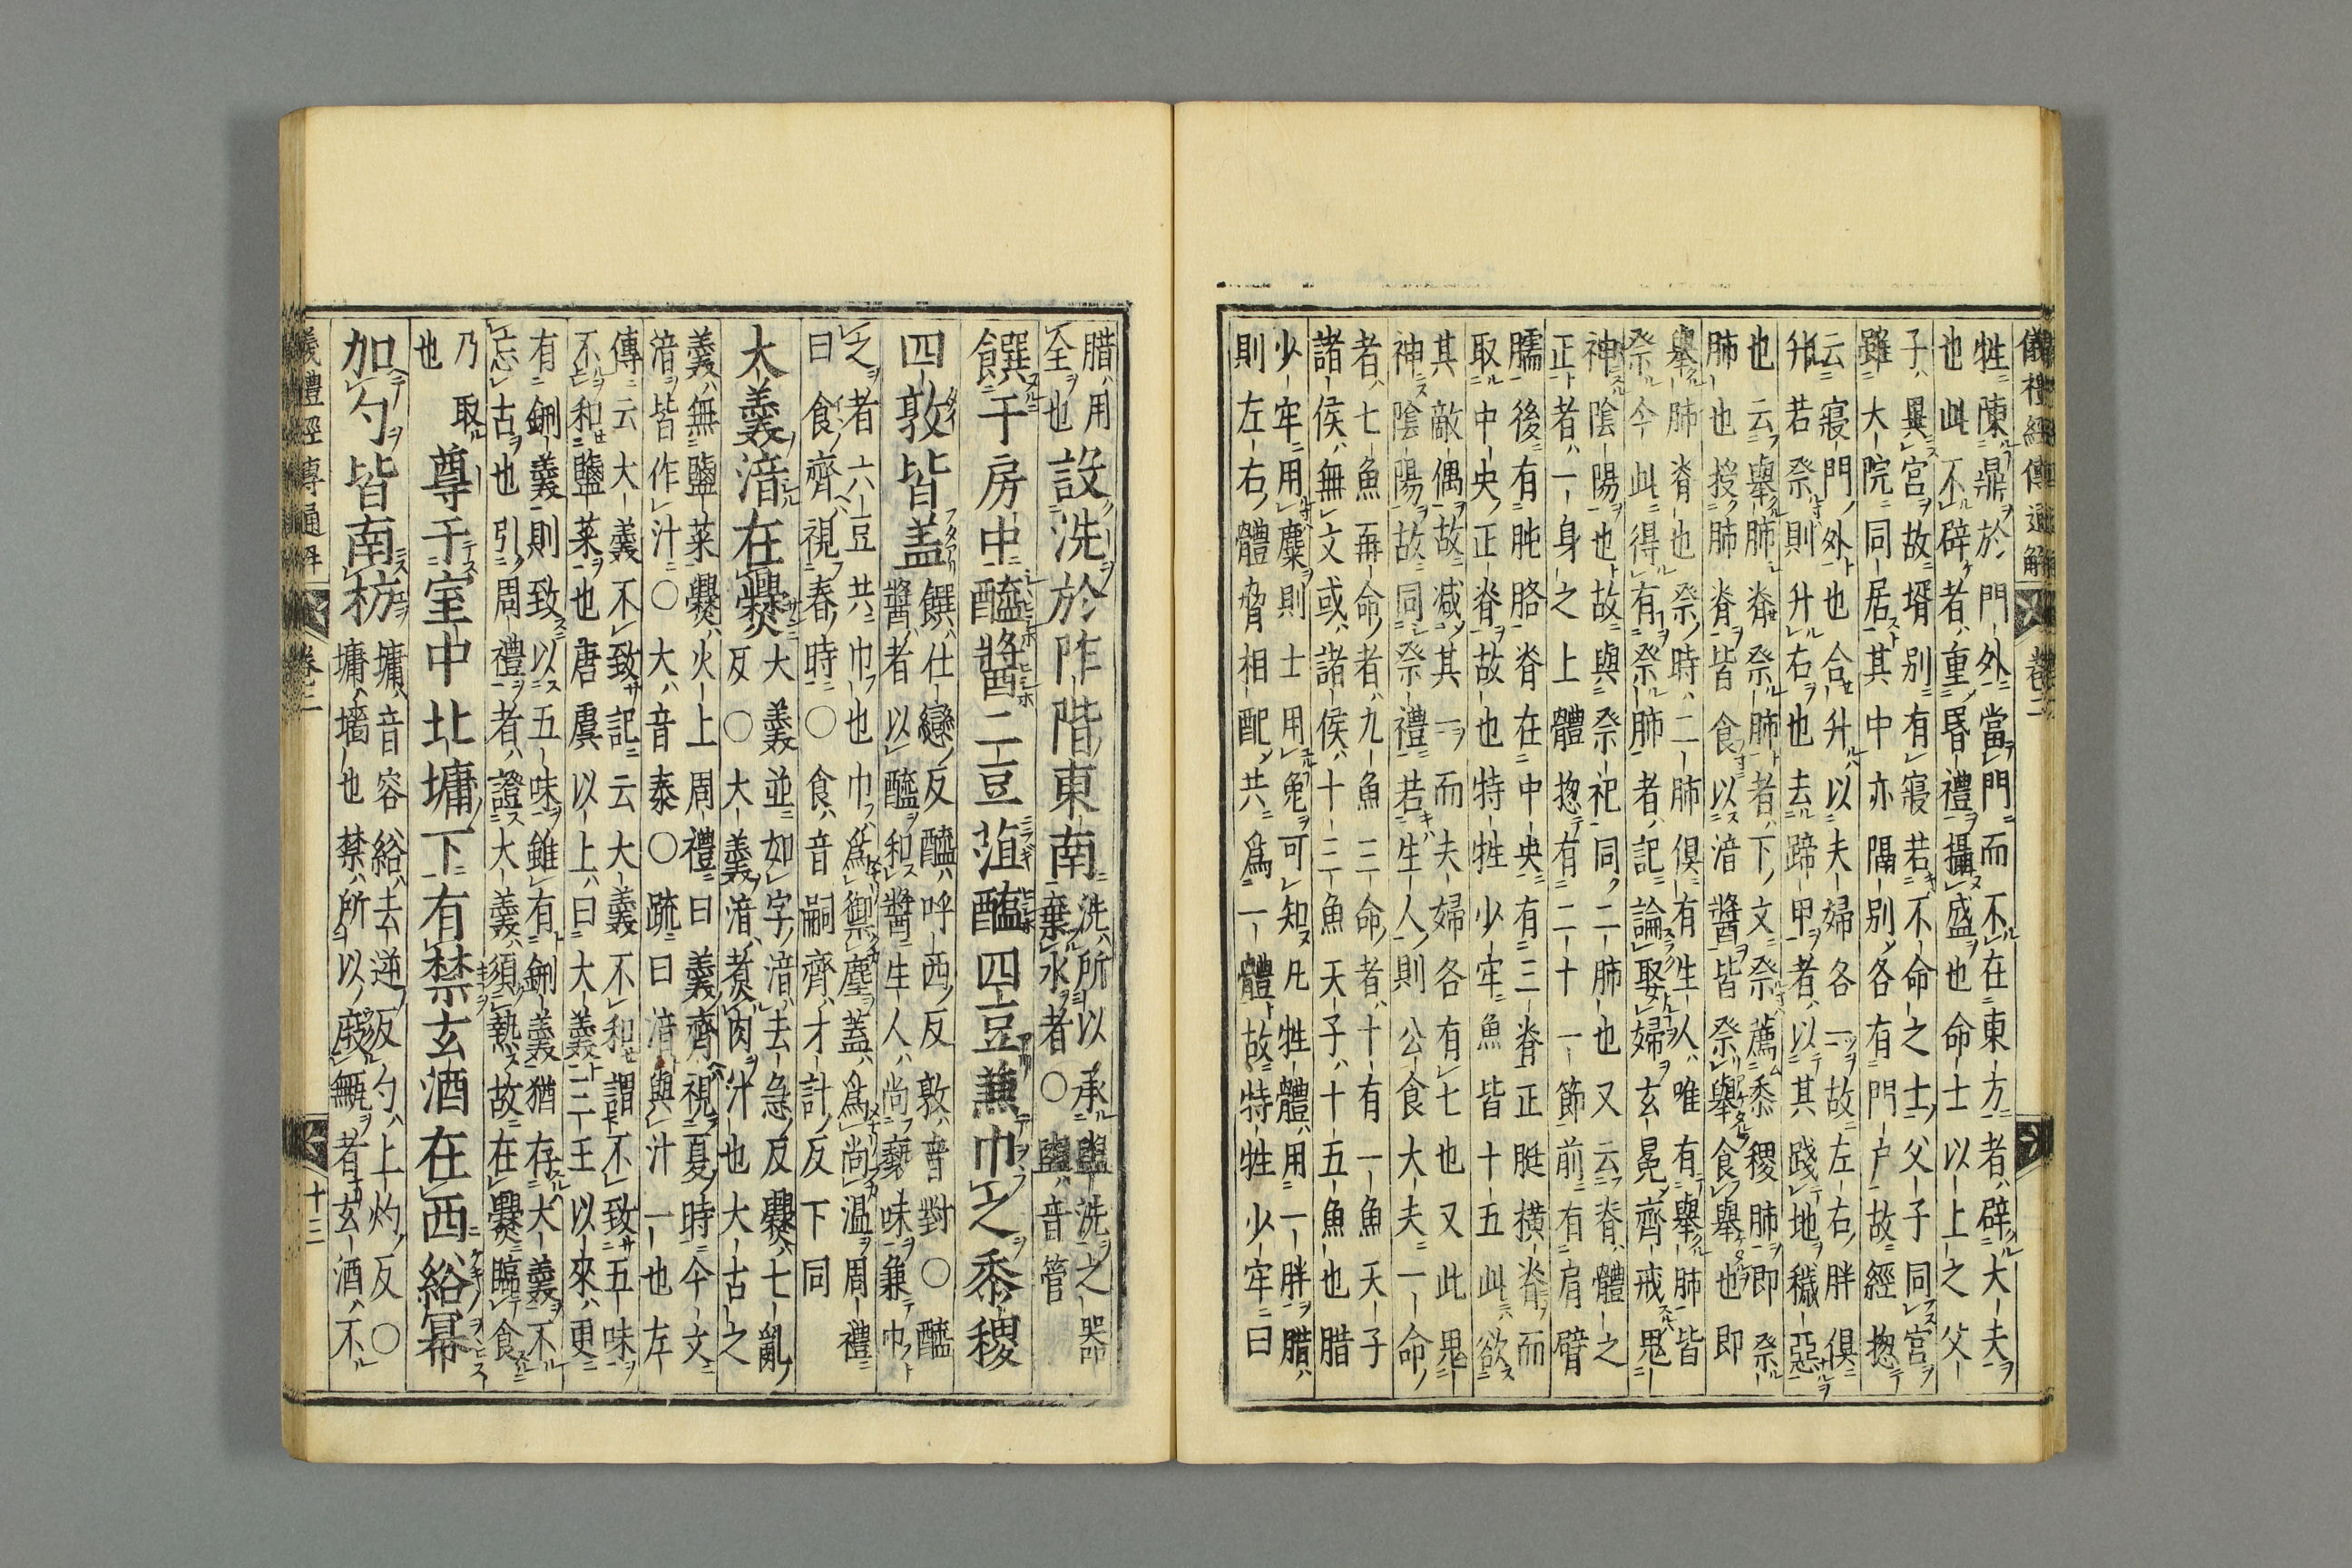 儀禮經傳通解 卷二
牲陳鼎於門外當門而不在東方者辟大夫
也此不辟者重昏禮攝盛也命士以上之父
子異宮故壻別有寢若不命之士父子同宮
雖大院同居其中亦隔別各有門戶故經揔
云寢門外也合升以夫婦各一故左右胖俱
升若祭則升右也去蹄甲者以其踐地穢惡
也云舉肺脊祭肺者下文祭薦黍稷肺即祭
肺也授肺脊皆食以湆醬皆祭舉食舉也即
舉肺脊也祭時二肺俱有生人唯有舉肺皆
祭今此得有祭肺者記論娶婦玄冕齊戒鬼
神陰陽也故與祭祀同二肺也又云脊體之
正者一身之上體揔有二十一節前有肩臂
臑後有肫胳脊在中央有三脊正脡橫脊而
取中央正脊故也特牲少牢魚皆十五此欲
其敵偶故减其一而夫婦各有七也又此鬼
神陰陽故同祭禮若生人則公食大夫一命
者七魚再命者九魚三命者十有一魚天子
諸侯無文或諸侯十三魚天子十五魚也腊
少牢用麋則士用兔可知凡牲體用一胖腊
則左右體脅相配共爲一體故特牲少牢曰
腊用
全也
設洗於阼階東南
洗所以承盥洗之器
棄水者○盥音管
饌于房中醯醬二豆菹醢四豆蒹巾之黍稷
四敦皆盖
饌仕戀反醯呼西反敦音對○醯
醬者以醯和醬生人尚褻味蒹巾
之者六豆共巾也巾爲禦塵蓋爲尚温周禮
曰食齊視春時○食音嗣齊才計反下同
大羹湆在爨
大羹並如字湆去急反爨七亂
反○大羹湆煑肉汁也大古之
羹無鹽菜爨火上周禮曰羹齊視夏時今文
湆皆作汁○大音泰○疏曰湆與汁一也左
傳云大羹不致記云大羹不和謂不致五味
不和鹽菜也唐虞以上曰大羹三王以來更
有鉶羹則致以五味雖有鉶羹猶存大羹不
忘古也引周禮者證大羹須熱故在爨臨食
乃取
也
尊于室中北墉下有禁玄酒在西綌冪
加勺皆南枋
墉音容綌去逆反勺上灼反○
墉墻也禁所以庪甒者玄酒不
儀禮經傳通解 卷二 十三